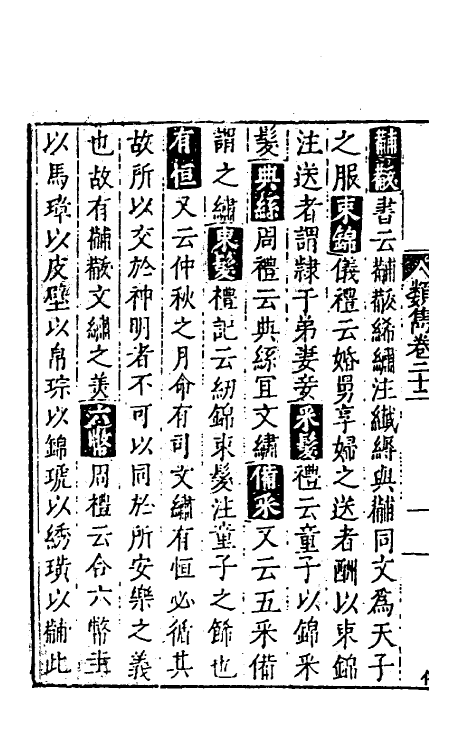 類雋卷二十二
黼黻書云黼黻絺繡注纖縟與黼同文為天子
之服束錦儀禮云婚舅享婦之送者酬以束錦
注送者謂隸子弟妻妾采髮禮云童子以錦采
髮典絲周禮云典絲宜文繡備采又云五采備
謂之繡束髮禮記云紐錦束髮注童子之飾也
有恒又云仲秋之月命有司文繡有恒必循其
故所以交於神明者不可以同於所安樂之義
也故有黼黻文繡之美六幣周禮云合六幣圭
以馬璋以皮璧以帛琮以錦琥以綉璜以黼此